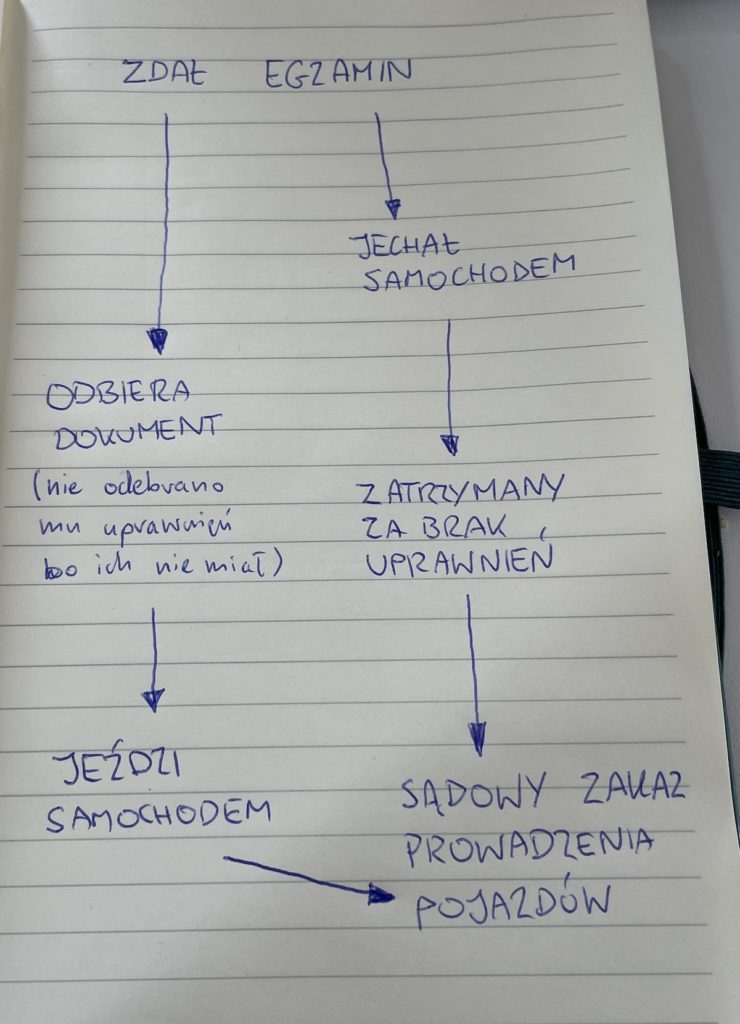 ZDAŁ EGZAMIN
JECHAŁ
SAMOCHODEM
ODBIERA
DOKUMENT
(nie odebrano
mu uprawnień
bo ich nie miał)
ZATRZYMANY
ZA BRAK
UPRAWNIEŃ
JEŹDZI
SAMOCHODEM
SĄDOWY ZAKAZ
PROWADZENIA
POJAZDÓW